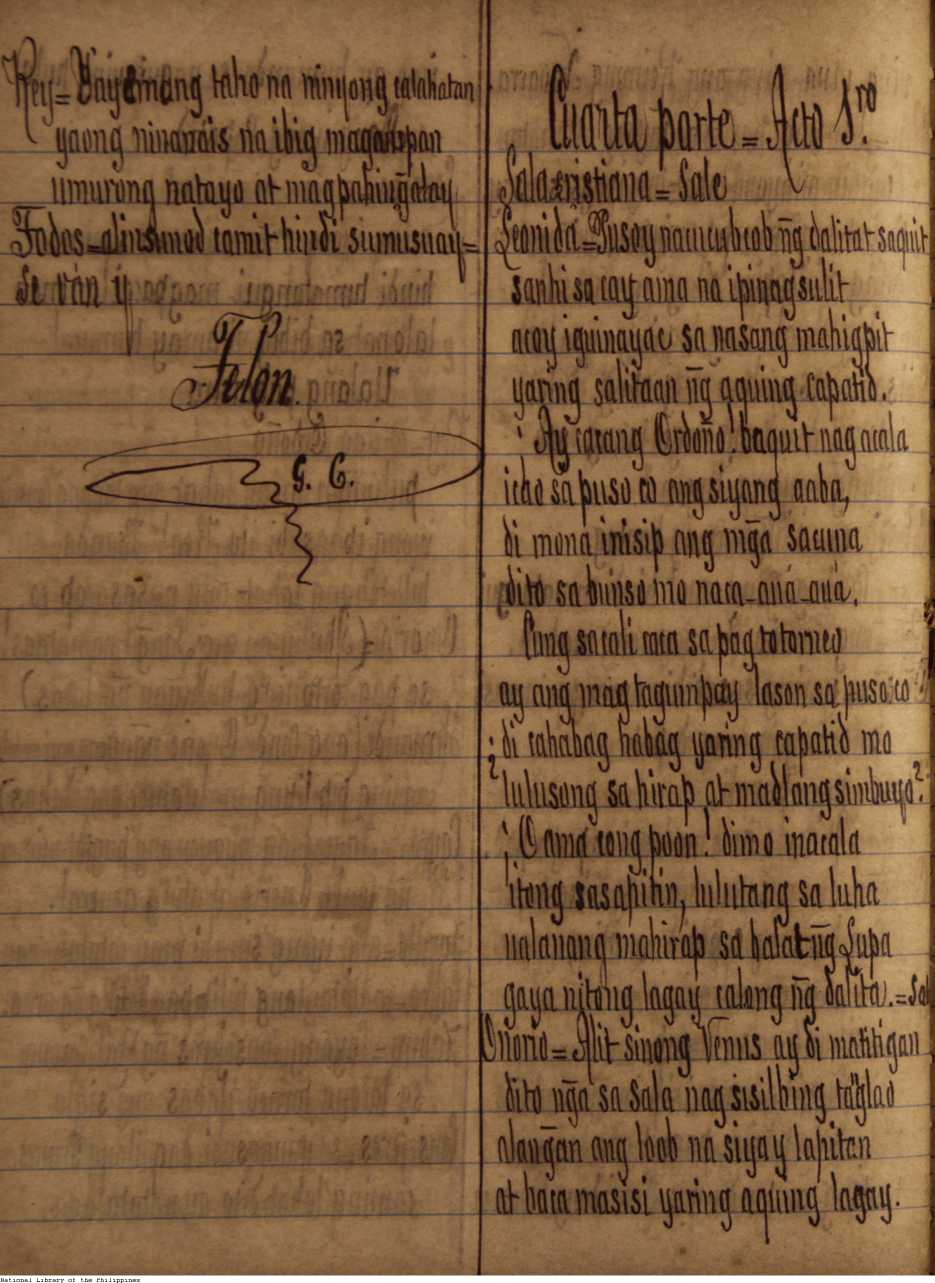 Rey= Yayamang taho na ninyong calahatan
yaong ninanais na ibig maganapan
umurong natayo at magpahingalay
Todos=alinsunod camit hindi sumusuay=
Se van ÿ
Telon.
G. C.
Cuarta parte = Acto 1.ro
Sala cristiana = Sale
Leonida=Pusoy nacucubcob ng̃ dalitat saquit
sanhi sa cay ama na ipinagsulit
acoy iguinayac sa nasang mahigpit
yaring salitaan ng̃ aquing capatid.
¡Ay cacang Ordoño! baquit nag acala
icao sa puso co ang siyang aaba,
di mona inisip ang mg̃a sacuna
dito sa bunso mo naca-aná-auá.
Cung sacali caca sa pag totorneo
ay ang magtagumpay lason sa puso co
¿di cahabag habag yaring capatid mo
lulusong sa hirap at madlang simbuyo?
¡O amá cong poon! dimo inacala
itong sasapitin, lulutang sa luha
ualanang mahirap sa balat ng̃ Lupa
gaya nitong lagay calong ng̃ dalita.=Sale
Onorio=Alit sinong Venus ay di matitigan
dito ng̃a sa sala nag sisilbing tag̃lao
alang̃an ang loob na siyay lapitan
at baca masisi yaring aquing lagay.
National Library of the Philippines